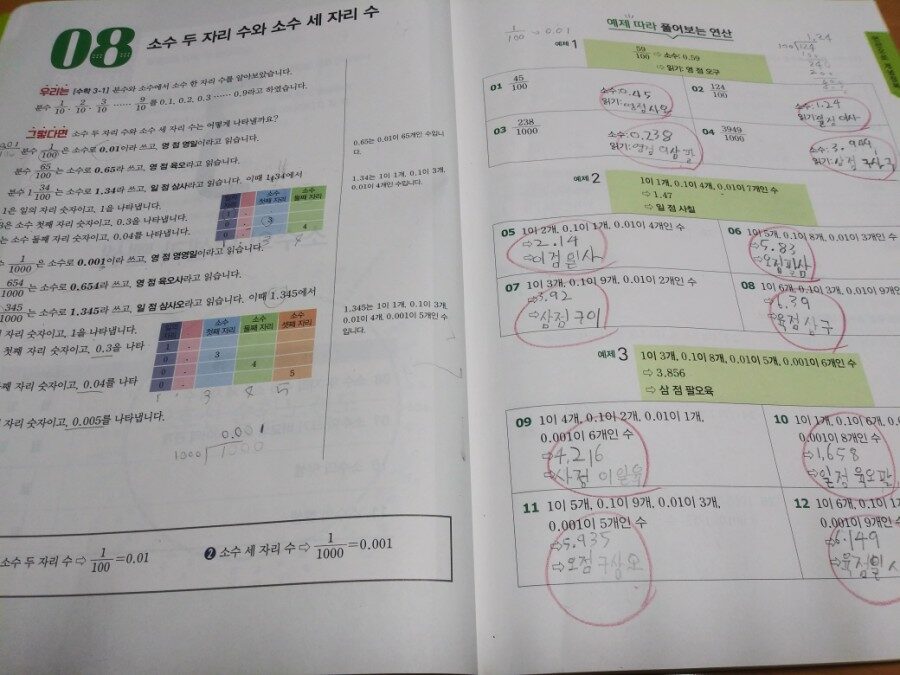 08 소수 두 자리 수와 소수 세 자리 수
우리는 [수학 3-1] 분수와 소수에서 소수 한 자리 수를 알아보았습니다.
분수 1/10, 2/10, 3/10, …… 9/10를 0.1, 0.2, 0.3 …… 0.9라고 하였습니다.
그렇다면 소수 두 자리 수와 소수 세 자리 수는 어떻게 나타낼까요?
분수 1/100은 소수로 0.01이라 쓰고, 영 점 영일이라고 읽습니다.
분수 65/100는 소수로 0.65라 쓰고, 영 점 육오라고 읽습니다.
분수 1 34/100는 소수로 1.34라 쓰고, 일 점 삼사라고 읽습니다. 이때 1.34에서
1은 일의 자리 숫자이고, 1을 나타냅니다.
은 소수 첫째 자리 숫자이고, 0.3을 나타냅니다.
는 소수 둘째 자리 숫자이고, 0.04를 나타냅니다.
소수 첫째 자리 소수 둘째 자리
1 .
0 . 3
0 . 4
3 4
수 1/1000은 소수로 0.001이라 쓰고, 영 점 영영일이라고 읽습니다.
654/1000는 소수로 0.654라 쓰고, 영 점 육오사라고 읽습니다.
345/1000는 소수로 1.345라 쓰고, 일 점 삼사오라고 읽습니다. 이때 1.345에서
자리 숫자이고, 1을 나타냅니다.
첫째 자리 숫자이고, 0.3을 나타
둘째 자리 숫자이고, 0.04를 나타
자리 숫자이고, 0.005를 나타냅니다.
소수 첫째 자리 소수 둘째 자리 소수 셋째 자리
1 .
0 . 3
0 . 4
0 . 5
1 . 3 4 5
0.001
1000 1000
0.65는 0.01이 65개인 수입니
다.
1.34는 1이 1개, 0.1이 3개,
0.01이 4개인 수입니다.
1.345는 1이 1개, 0.1이 3개
0.01이 4개, 0.001이 5개인 수
입니다.
소수 두 자리 수 ⇨ 1/100=0.01
❷ 소수 세 자리 수 ⇨ 1/1000=0.001
1/100 = 0.01
예제 따라 풀어보는 연산
예제 1
59/100 ⇨ 소수: 0.59
⇨ 읽기: 영 점 오구
1.24
100 124
01 45/100
소수: 0.45
읽기: 영점사오
02 124/100
소수: 1.24
읽기: 일점 이사
03 238/1000
소수: 0.238
읽기: 영점 이삼팔
04 3949/1000
소수: 3.949
읽기: 삼점 구사구
예제 2
1이 1개, 0.1이 4개, 0.01이 7개인 수
⇨ 1.47
⇨ 일 점 사칠
05 1이 2개, 0.1이 1개, 0.01이 4개인 수
⇨ 2.14
⇨ 이점 일사
06 1이 5개, 0.1이 8개, 0.01이 3개인 수
⇨ 5.83
⇨ 오점팔삼
07 1이 3개, 0.1이 9개, 0.01이 2개인 수
⇨ 3.92
⇨ 삼점 구이
08 1이 6개, 0.1이 3개, 0.01이 9개인
⇨ 6.39
⇨ 육점 삼구
예제 3
1이 3개, 0.1이 8개, 0.01이 5개, 0.001이 6개인 수
⇨ 3.856
⇨ 삼 점 팔오육
09 1이 4개, 0.1이 2개, 0.01이 1개,
0.001이 6개인 수
⇨ 4.216
⇨ 사점 이일육
10 1이 1개, 0.1이 6개, 0.
0.001이 8개인 수
⇨ 1.658
⇨ 일점 육오팔
11 1이 5개, 0.1이 9개, 0.01이 3개,
0.001이 5개인 수
⇨ 5.935
⇨ 오점 구삼오
12 1이 6개, 0.1이 1
0.001이 9개인 수
⇨ 6.149
⇨ 육점일사